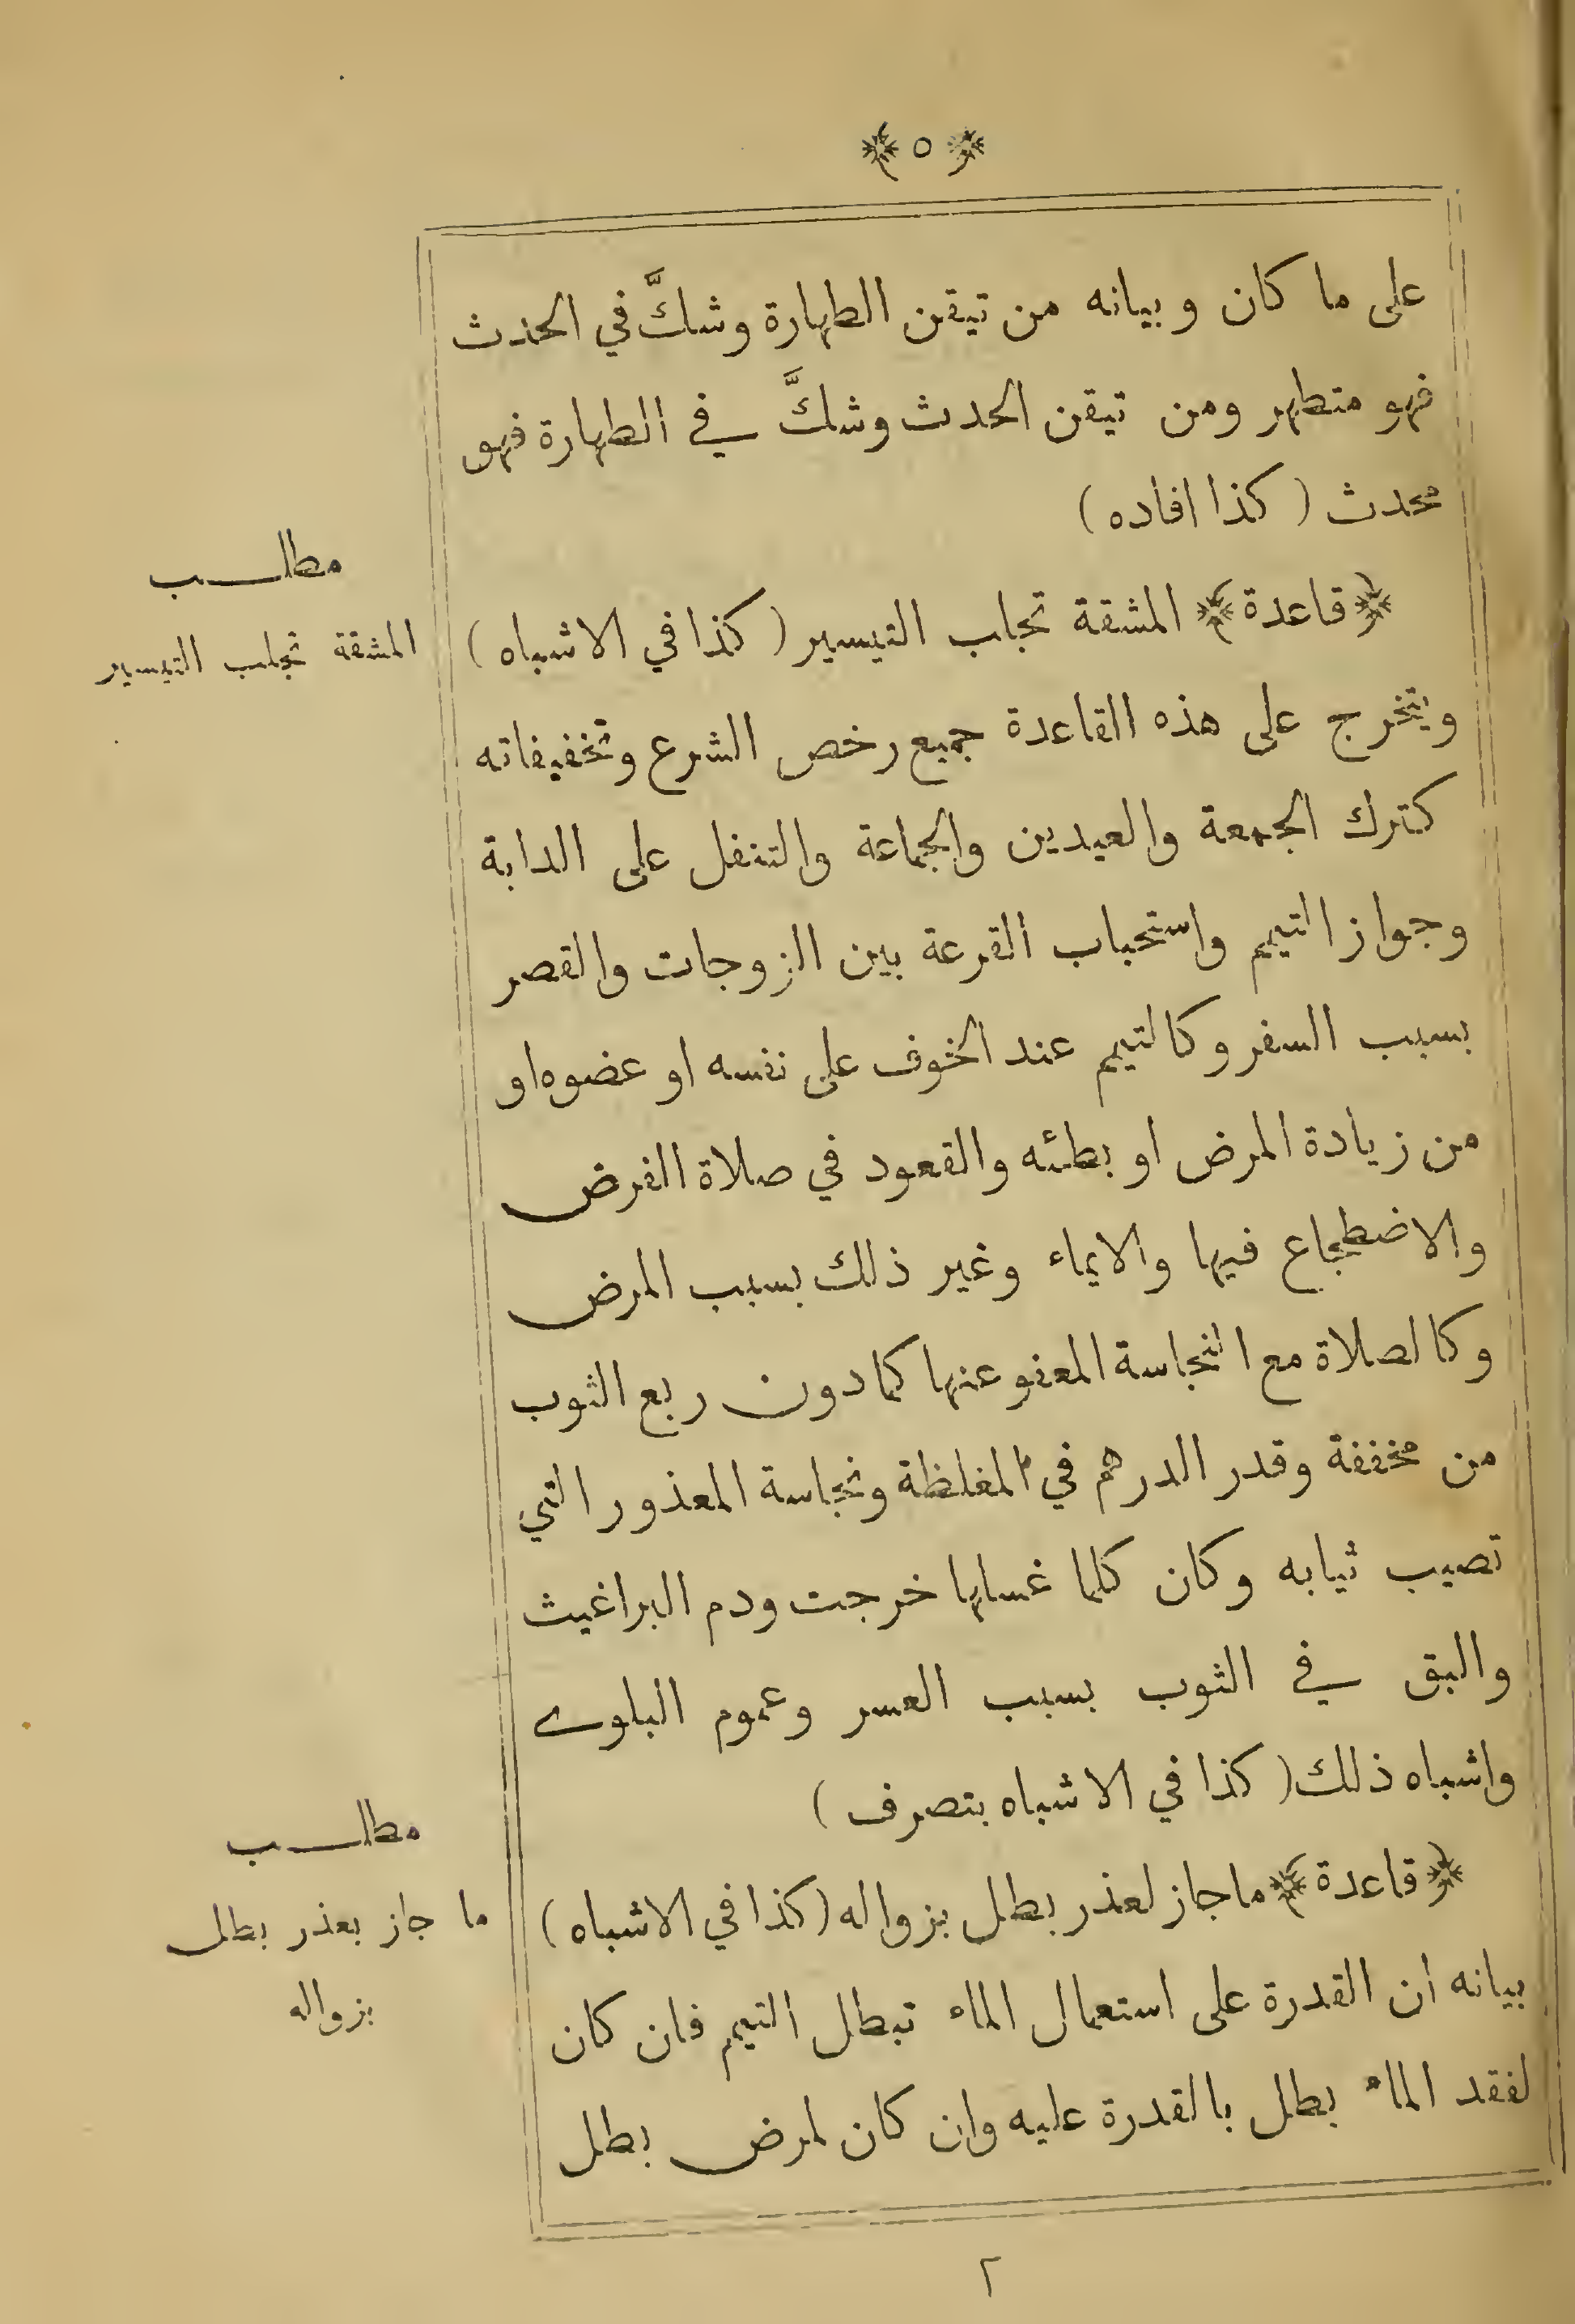 ﴿ ٥ ﴾
على ما كان وبيانه من تيقن الطهارة وشكَّ في الحدث
فهو متطهر ومن تيقن الحدث وشكَّ في الطهارة فهو
محدث ( كذا افاده )
﴿ قاعدة ﴾ المشقة تجلب التيسير ( كذا في الاشباه )
مطلب
المشقة تجلب التيسير
ويتخرج على هذه القاعدة جميع رخص الشرع وتخفيفاته
كترك الجمعة والعيدين والجماعة والتنفل على الدابة
وجواز التيمم واستحباب القرعة بين الزوجات والقصر
بسبب السفر وكالتيمم عند الخوف على نفسه او عضوه او
من زيادة المرض او بطئه والقعود في صلاة الفرض
والاضطجاع فيها والايماء وغير ذلك بسبب المرض
وكالصلاة مع النجاسة المعفو عنها كما دون ربع الثوب
من مخففة وقدر الدرهم في المغلظة ونجاسة المعذور التي
تصيب ثيابه وكان كلما غسلها خرجت ودم البراغيث
والبق في الثوب بسبب العسر وعموم البلوے
واشباه ذلك ( كذا في الاشباه بتصرف )
﴿ قاعدة ﴾ ما جاز لعذر بطل بزواله ( كذا في الاشباه )
مطلب
ما جاز بعذر بطل
بزواله
بيانه ان القدرة على استعمال الماء تبطل التيمم فان كان
لفقد الماء بطل بالقدرة عليه وان كان لمرض بطل
٢